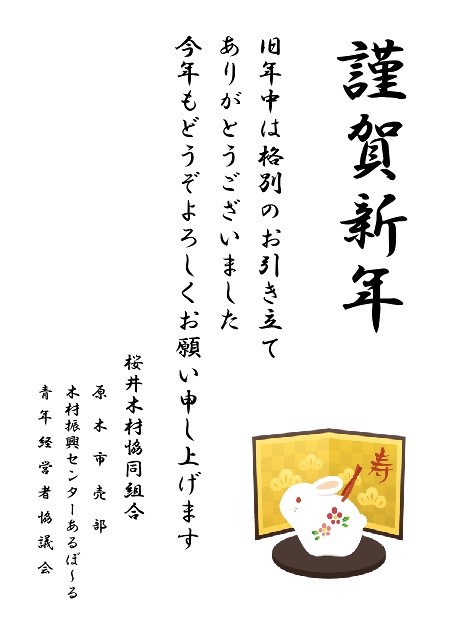 謹賀新年
旧年中は格別のお引き立て
ありがとうございました
今年もどうぞよろしくお願い申し上げます
桜井木材協同組合
原木市売部
木材振興センターあるぼ～る
青年経営者協議会
寿